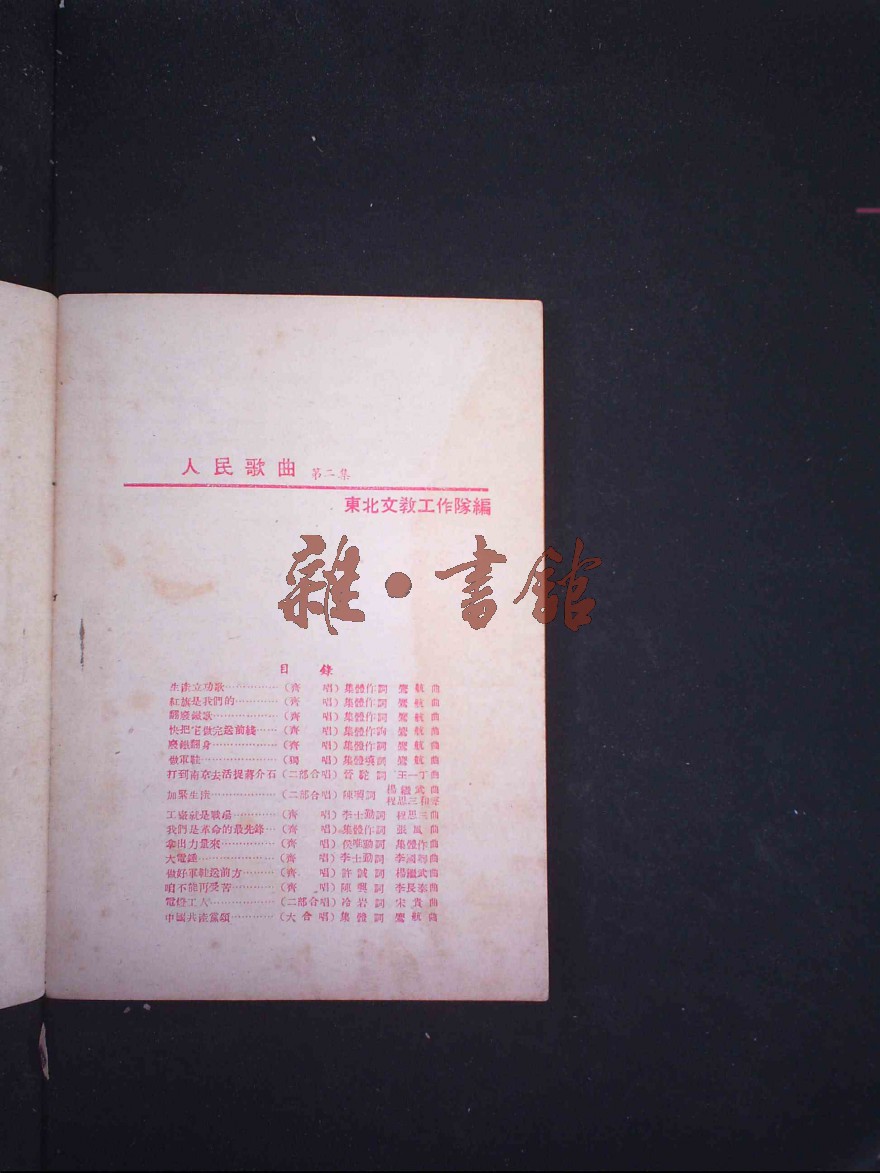 人民歌曲 第二集
東北文教工作隊編
雜·書館
目 錄
生產立功歌……………(齊 唱)集體作詞 鷺航曲
紅旗是我們的…………(齊 唱)集體作詞 航曲
翻 歌……………(齊 唱)集體作詞 航曲
快把它做完送前綫……(齊 唱)集體作詞 航曲
翻身……………(齊 唱)集體作詞 航曲
做軍鞋………………(獨 唱)集體 詞 航曲
打到南京去活捉蔣介石(二部合唱)晉駝詞 王一丁曲
加緊生產……………(二部合唱)陳 詞 楊繼武曲
程思三和聲
工廠就是戰場…………(齊 唱)李士勤詞 程思三曲
我們是革命的最先鋒…(齊 唱)集體作詞 張風曲
拿出力量來……………(齊 唱)侯唯勤詞 集體作曲
大電錘…………………(齊 唱)李士勤詞 李國 曲
做好軍鞋送前方………(齊 唱)許誠詞 楊繼武曲
咱不能再受苦…………(齊 唱)陳興詞 李長泰曲
電燈工人……………(二部合唱)冷岩詞 宋貴曲
中國共產黨頌…………(大合唱)集體詞 航曲